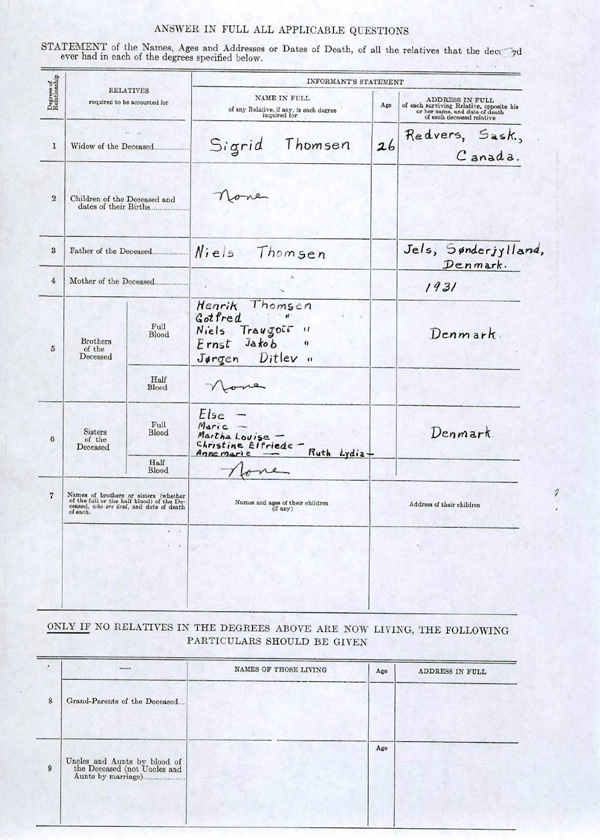 ANSWER IN FULL ALL APPLICABLE QUESTIONS
STATEMENT of the Names, Ages and Addresses or Dates of Death, of all the relatives that the
ever had in each of the degrees specified below.
Degrees of Relationship
RELATIVES
required to be accounted for
INFORMANT'S STATEMENT
NAME IN FULL
of any Relative, if any, in each degree
inquired for
Age
ADDRESS IN FULL
of each surviving Relative, opposite his
or her name, and date of death
of each deceased relative
1 Widow of the Deceased Sigrid Thomsen 26 Redvers, Sask.,
Canada.
2 Children of the Deceased and
dates of their Births None
3 Father of the Deceased Niels Thomsen Jels, Sønderjylland,
Denmark.
4 Mother of the Deceased 1931
5 Brothers
of the
Deceased
Full
Blood
Henrik Thomsen
Gotfred "
Niels Traugott "
Ernst Jakob "
Jørgen Ditlev "
Denmark
Half
Blood
None
6 Sisters
of the
Deceased
Full
Blood
Else —
Marie —
Martha Louise —
Christine Elfriede —
Annemarie — Ruth Lydia —
Denmark
Half
Blood
None
7 Names of brothers or sisters (whether
of the full or the half blood) of the De-
ceased, who are dead, and date of death
of each.
Names and ages of their children
(if any)
Address of their children
ONLY IF NO RELATIVES IN THE DEGREES ABOVE ARE NOW LIVING, THE FOLLOWING
PARTICULARS SHOULD BE GIVEN
— NAMES OF THOSE LIVING Age ADDRESS IN FULL
8 Grand-Parents of the Deceased
Age
9 Uncles and Aunts by blood of
the Deceased (not Uncles and
Aunts by marriage)